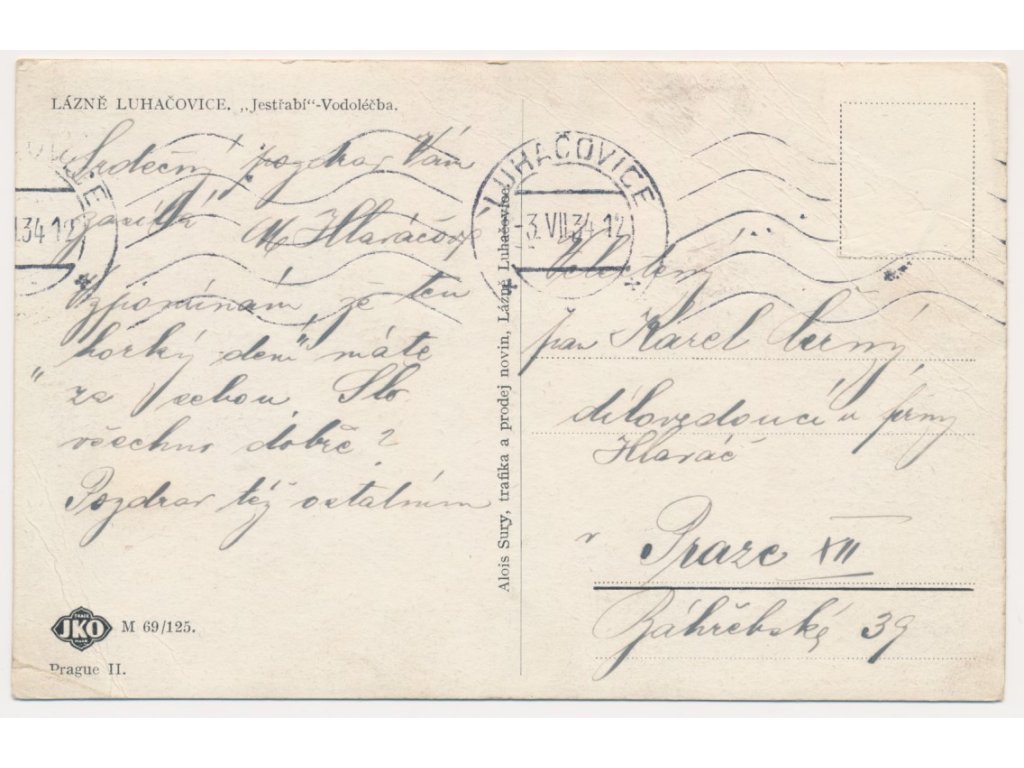 LÁZNĚ LUHAČOVICE. „Jestřabí"-Vodoléčba.
Srdečný pozdrav Vám
zasílá
M Hlaváčová
Vzpomínám, že ten
horký den máte
za sebou. Šlo
všechno dobře?
Pozdrav též ostatním
JKO
M 69/125.
Prague II.
Alois Sury, trafika a prodej novin, Lázně Luhačovice.
LUHAČOVICE
-3.VII.34-12
Velectěný
pan Karel Černý
dílovedoucí u firmy
Hlaváč
v Praze XII
Záhřebská 39